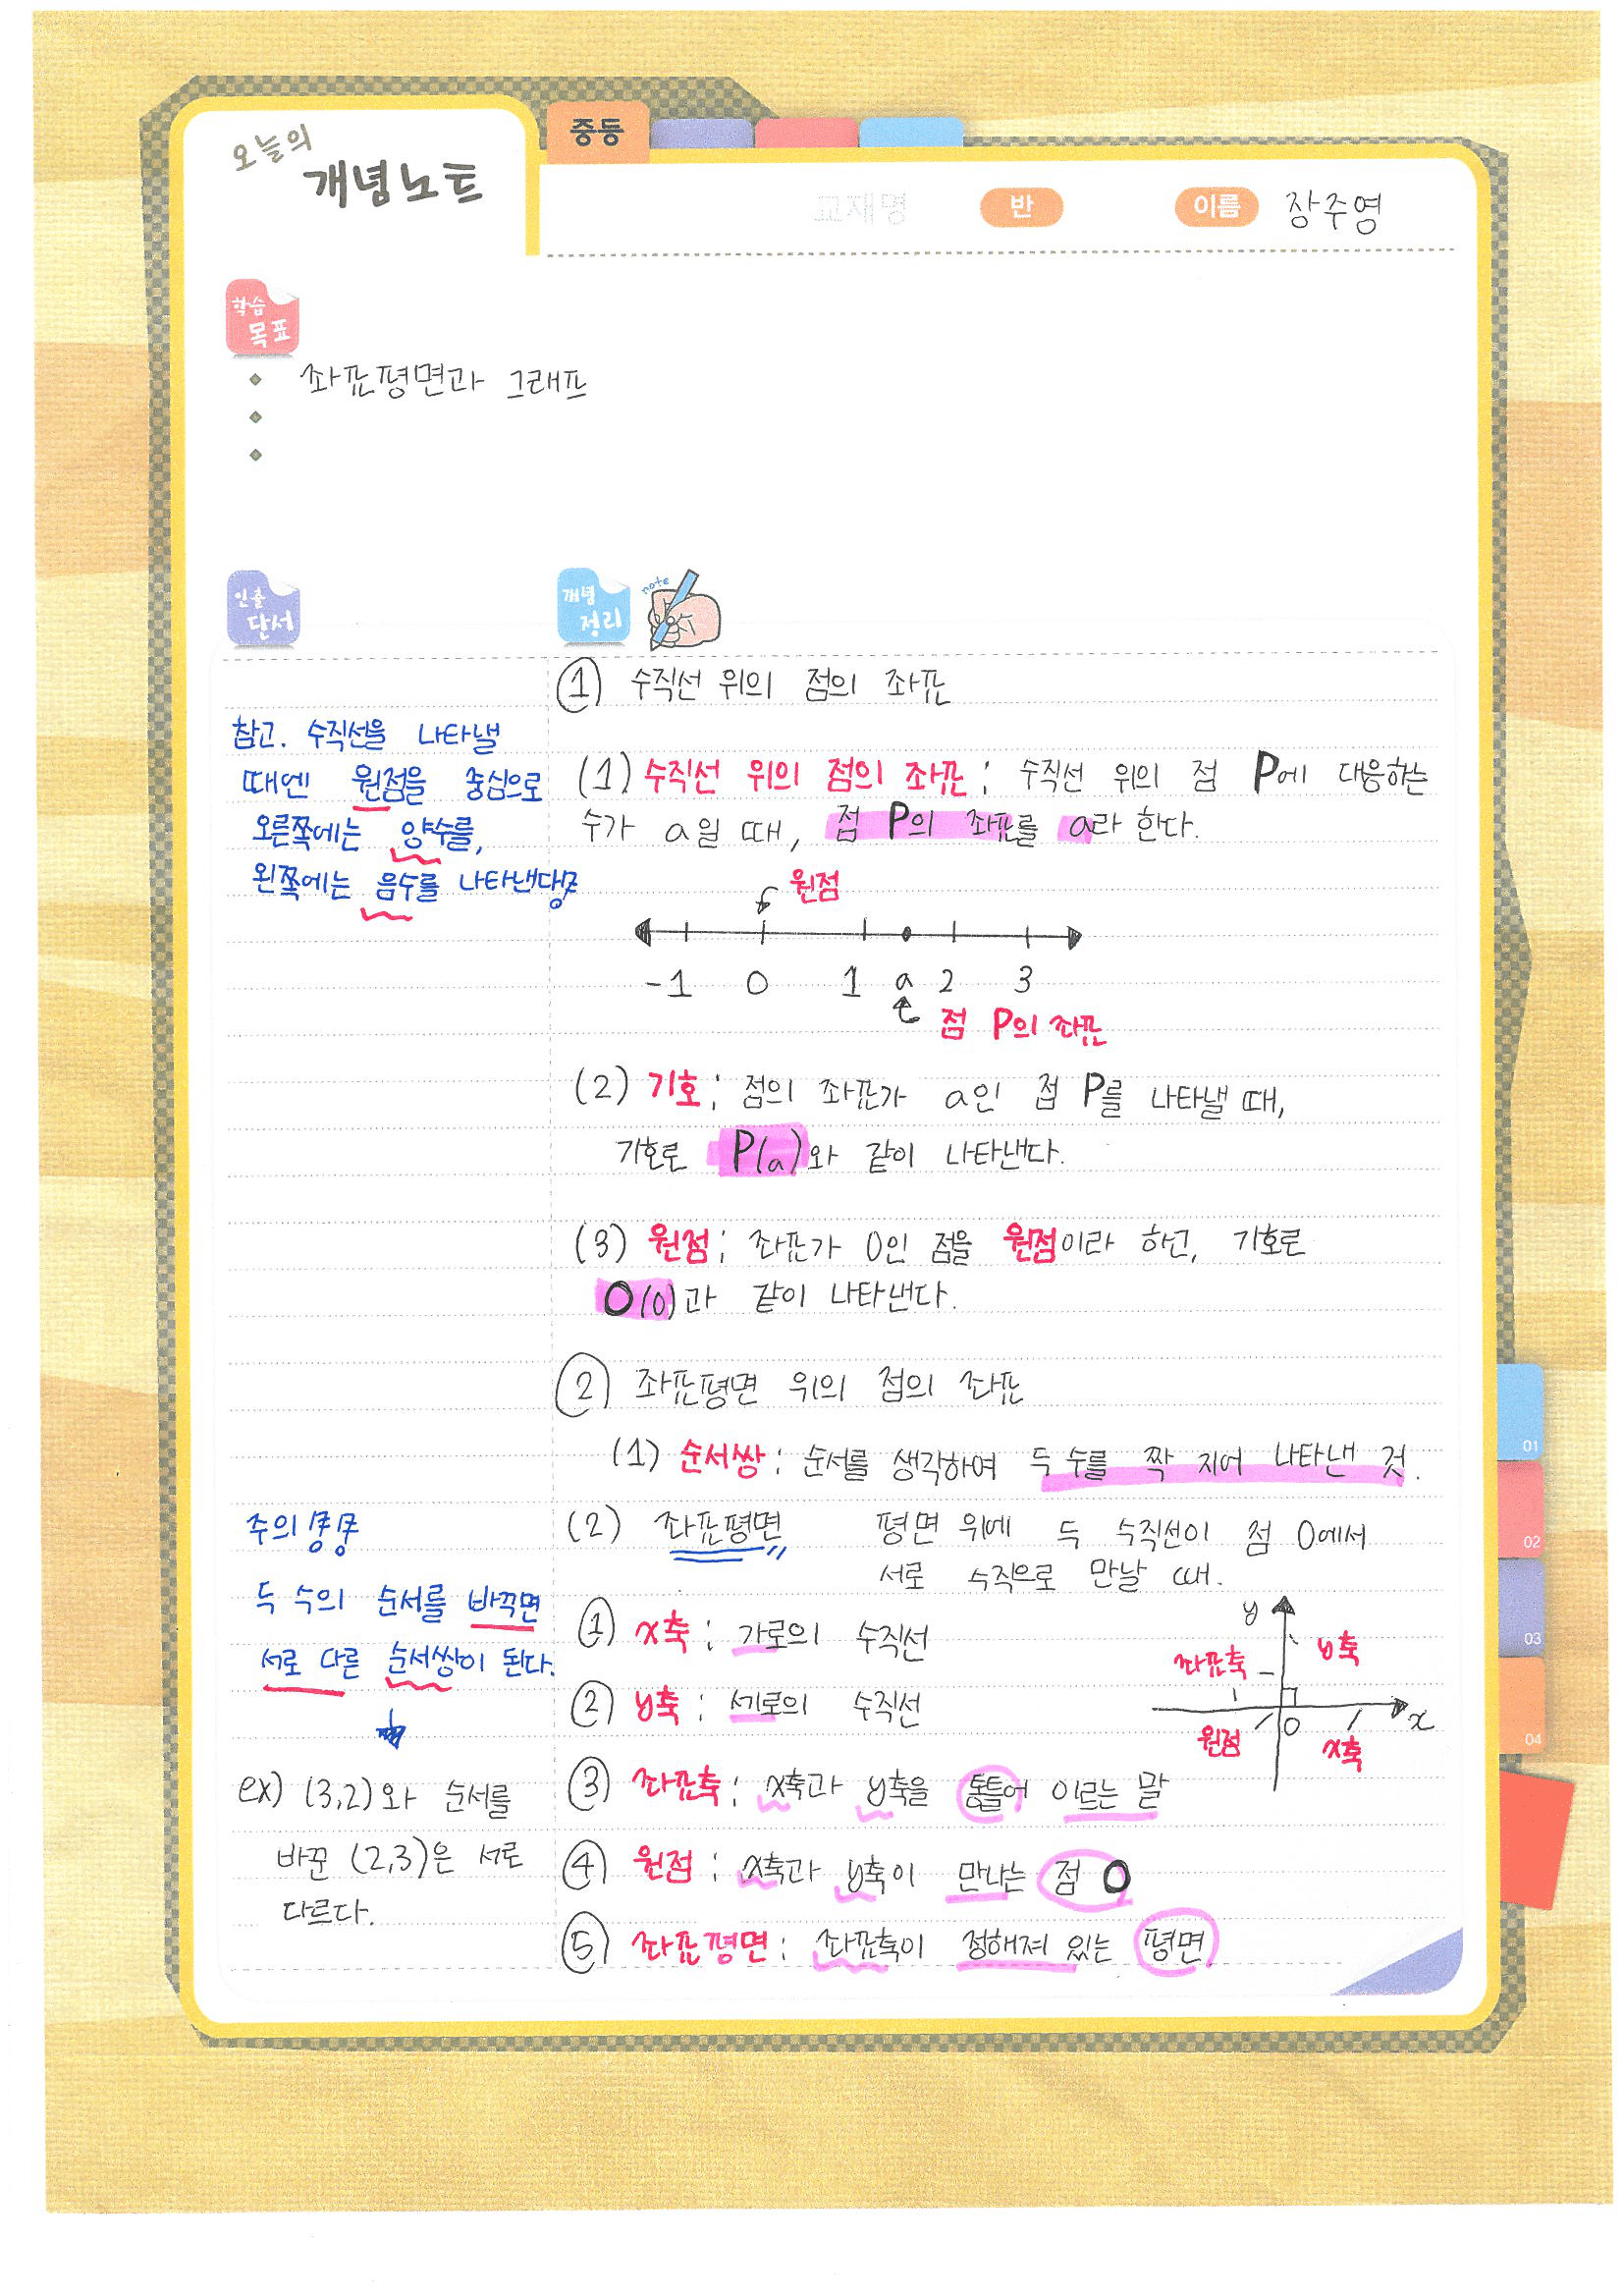 오늘의
개념노트
중등
교재명 반 이름 장주영
학습
목표
좌표평면과 그래프
인출
단서
개념
정리
note
① 수직선 위의 점의 좌표
참고. 수직선을 나타낼
때엔 원점을 중심으로
오른쪽에는 양수를,
왼쪽에는 음수를 나타낸다!
(1) 수직선 위의 점의 좌표 : 수직선 위의 점 P에 대응하는
수가 a일 때, 점 P의 좌표를 a라 한다.
원점
-1 0 1 a 2 3
점 P의 좌표
(2) 기호 : 점의 좌표가 a인 점 P를 나타낼 때,
기호로 P(a)와 같이 나타낸다.
(3) 원점 : 좌표가 0인 점을 원점이라 하고, 기호로
O(0)과 같이 나타낸다.
② 좌표평면 위의 점의 좌표
(1) 순서쌍 : 순서를 생각하여 두 수를 짝 지어 나타낸 것.
주의!!
두 수의 순서를 바꾸면
서로 다른 순서쌍이 된다.
ex) (3,2)와 순서를
바꾼 (2,3)은 서로
다르다.
(2) 좌표평면 평면 위에 두 수직선이 점 O에서
서로 수직으로 만날 때.
① x축 : 가로의 수직선
② y축 : 세로의 수직선
y
좌표축 y축
원점 O x축 x
③ 좌표축 : x축과 y축을 통틀어 이르는 말
④ 원점 : x축과 y축이 만나는 점 O
⑤ 좌표평면 : 좌표축이 정해져 있는 평면.
01
02
03
04